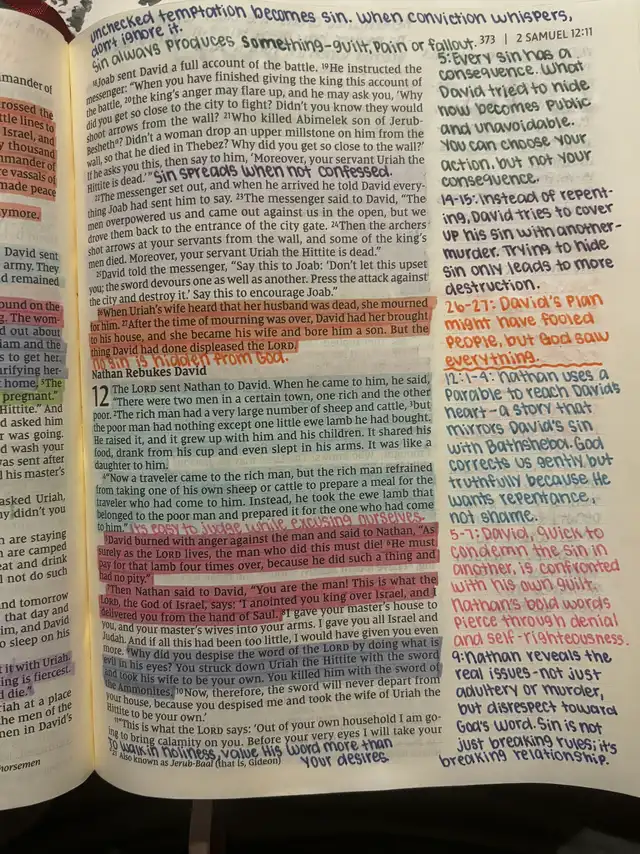 unchecked temptation becomes sin. when conviction whispers,
don't ignore it.
Sin always produces something-guilt, pain or fallout.
373 | 2 SAMUEL 12:11
18Joab sent David a full account of the battle. 19He instructed the
messenger: "When you have finished giving the king this account of
the battle, 20the king's anger may flare up, and he may ask you, 'Why
did you get so close to the city to fight? Didn't you know they would
shoot arrows from the wall? 21Who killed Abimelek son of Jerub-
Besheth? Didn't a woman drop an upper millstone on him from the
wall, so that he died in Thebez? Why did you get so close to the wall?'
If he asks you this, then say to him, 'Moreover, your servant Uriah the
Hittite is dead.'" Sin spreads when not confessed.
22The messenger set out, and when he arrived he told David every-
thing Joab had sent him to say. 23The messenger said to David, "The
men overpowered us and came out against us in the open, but we
drove them back to the entrance of the city gate. 24Then the archers
shot arrows at your servants from the wall, and some of the king's
men died. Moreover, your servant Uriah the Hittite is dead."
25David told the messenger, "Say this to Joab: 'Don't let this upset
you; the sword devours one as well as another. Press the attack against
the city and destroy it.' Say this to encourage Joab."
26When Uriah's wife heard that her husband was dead, she mourned
for him. 27After the time of mourning was over, David had her brought
to his house, and she became his wife and bore him a son. But the
thing David had done displeased the LORD.
no sin is hidden from God.
Nathan Rebukes David
12 The LORD sent Nathan to David. When he came to him, he said,
"There were two men in a certain town, one rich and the other
poor. 2The rich man had a very large number of sheep and cattle, 3but
the poor man had nothing except one little ewe lamb he had bought.
He raised it, and it grew up with him and his children. It shared his
food, drank from his cup and even slept in his arms. It was like a
daughter to him.
4"Now a traveler came to the rich man, but the rich man refrained
from taking one of his own sheep or cattle to prepare a meal for the
traveler who had come to him. Instead, he took the ewe lamb that
belonged to the poor man and prepared it for the one who had come
to him." It's easy to judge while excusing ourselves.
5David burned with anger against the man and said to Nathan, "As
surely as the LORD lives, the man who did this must die! 6He must
pay for that lamb four times over, because he did such a thing and
had no pity."
7Then Nathan said to David, "You are the man! This is what the
LORD, the God of Israel, says: 'I anointed you king over Israel, and I
delivered you from the hand of Saul. 8I gave your master's house to
you, and your master's wives into your arms. I gave you all Israel and
Judah. And if all this had been too little, I would have given you even
more. 9Why did you despise the word of the LORD by doing what is
evil in his eyes? You struck down Uriah the Hittite with the sword
and took his wife to be your own. You killed him with the sword of
the Ammonites. 10Now, therefore, the sword will never depart from
your house, because you despised me and took the wife of Uriah the
Hittite to be your own.'
11"This is what the LORD says: 'Out of your own household I am go-
ing to bring calamity on you. Before your very eyes I will take your
To walk in holiness, value His word more than
your desires.
21 Also known as Jerub-Baal (that is, Gideon)
5: Every sin has a
consequence. What
David tried to hide
now becomes public
and unavoidable.
You can choose your
action, but not your
consequence.
14-15: Instead of repent-
ing, David tries to cover
up his sin with another-
murder. Trying to hide
sin only leads to more
destruction.
26-27: David's plan
might have fooled
people, but God saw
everything.
12:1-4: Nathan uses a
parable to reach David's
heart-a story that
mirrors David's sin
with Bathsheba. God
corrects us gently but
truthfully because He
wants repentance,
not shame.
5-7: David, quick to
condemn the sin in
another, is confronted
with his own guilt.
Nathan's bold words
pierce through denial
and self-righteousness.
9: Nathan reveals the
real issues-not just
adultery or murder,
but disrespect toward
God's word. Sin is not
just breaking rules; it's
breaking relationship.
mmander of
rossed the
ttle lines to
Israel, and
y thousand
mmander of
e vassals of
made peace
ymore.
David sent
army. They
d remained
ound on the
g. The wom-
d out about
iam and the
s to get her.
arifying her-
home, 5The
pregnant."
Hittite." And
d asked him
r was going.
d wash your
was sent after
l his master's
asked Uriah,
hy didn't you
n are staying
n are camped
eat and drink
l not do such
nd tomorrow
that day and
im, and David
o sleep on his
t it with Uriah
ng is fiercest.
d die."
iah at a place
the men of the
men in David's
horsemen